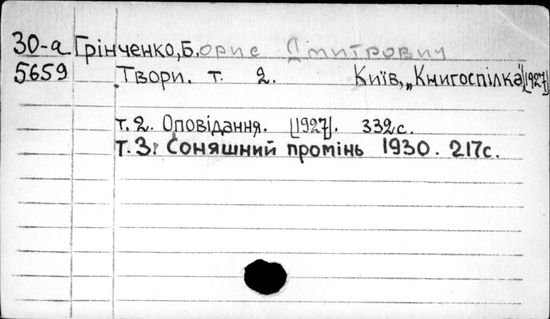 30-а Грінченко, Борис Дмитрович
5659 Твори. т. 2. Київ, „Книгоспілка" [1927]
т. 2. Оповідання. [1927]. 332 с.
т. 3. Соняшний промінь 1930. 217 с.